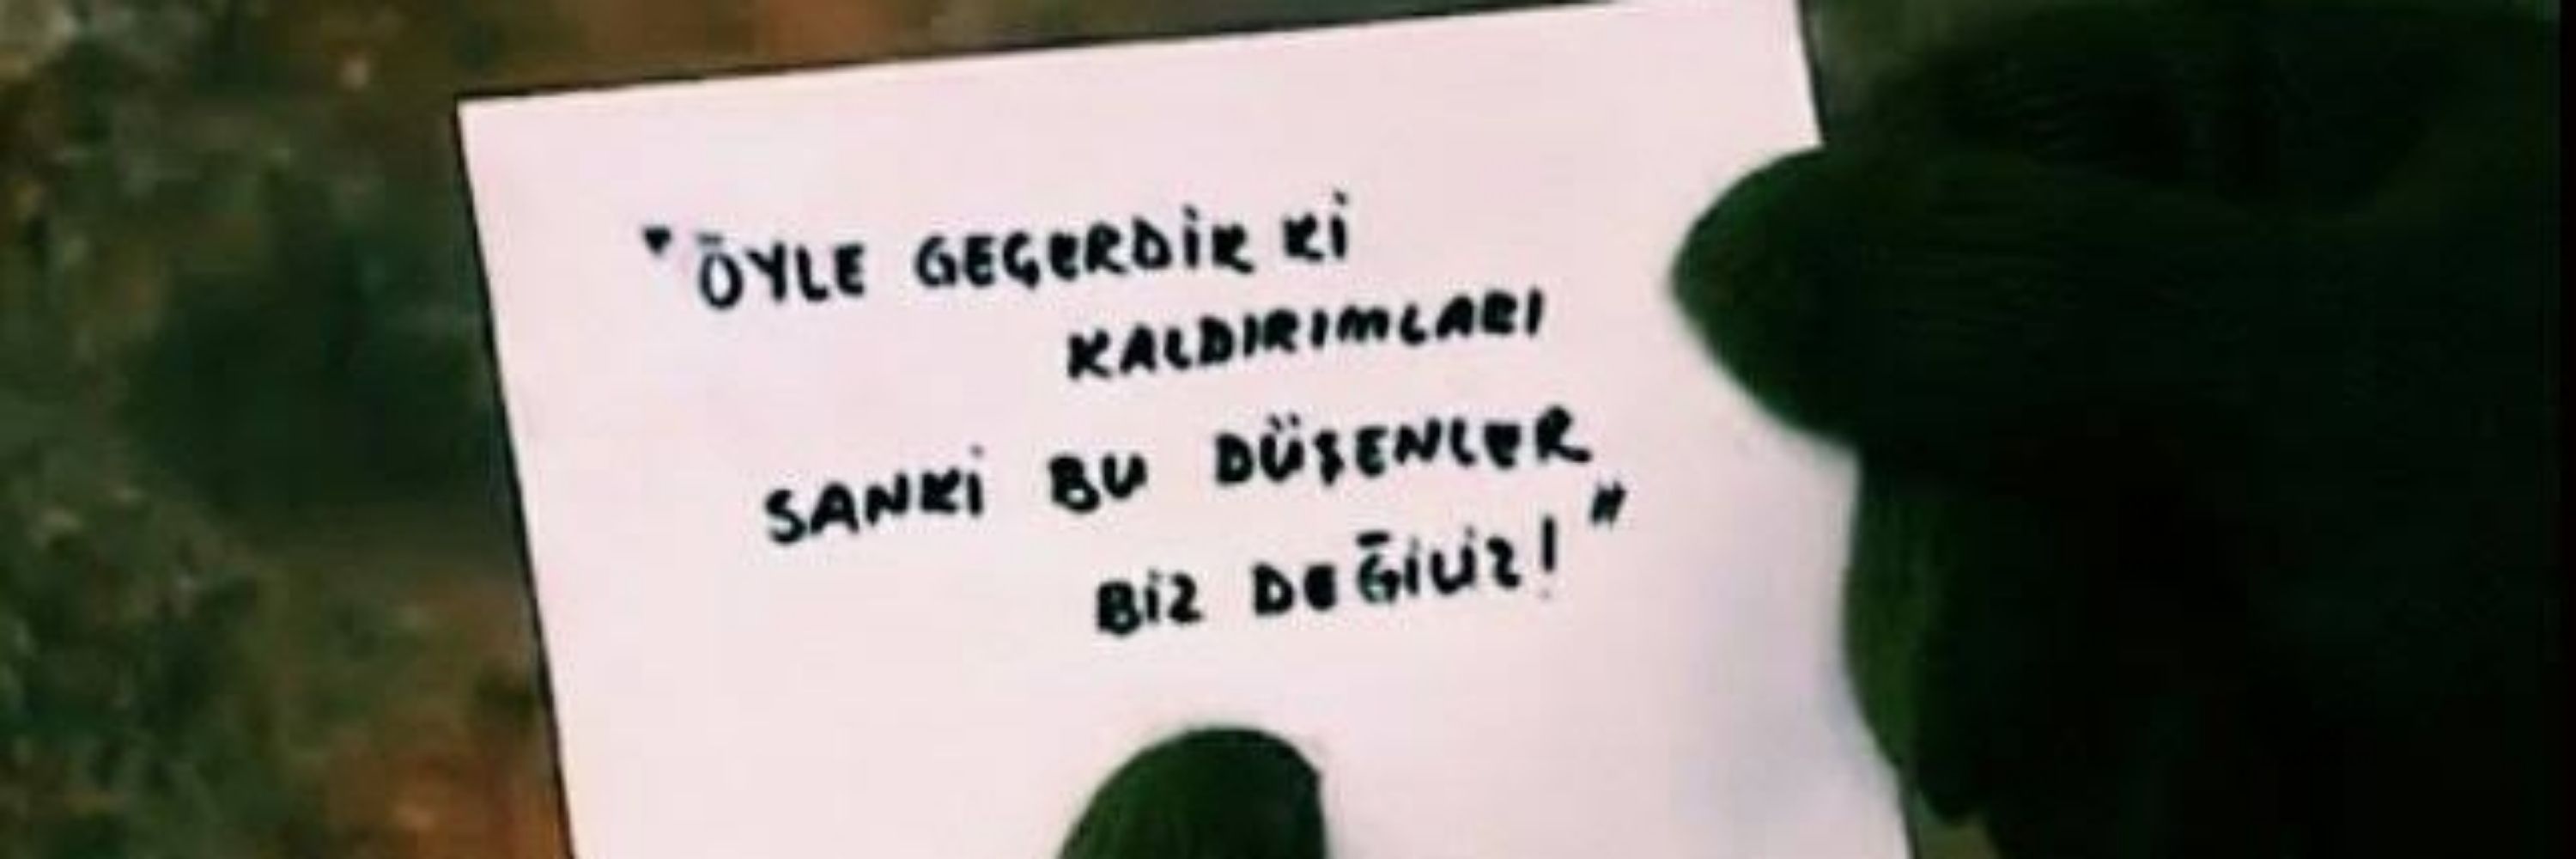 "ÖYLE GEÇERDİK Kİ
KALDIRIMLARI
SANKİ BU DÜŞENLER
BİZ DEĞİLİZ!"